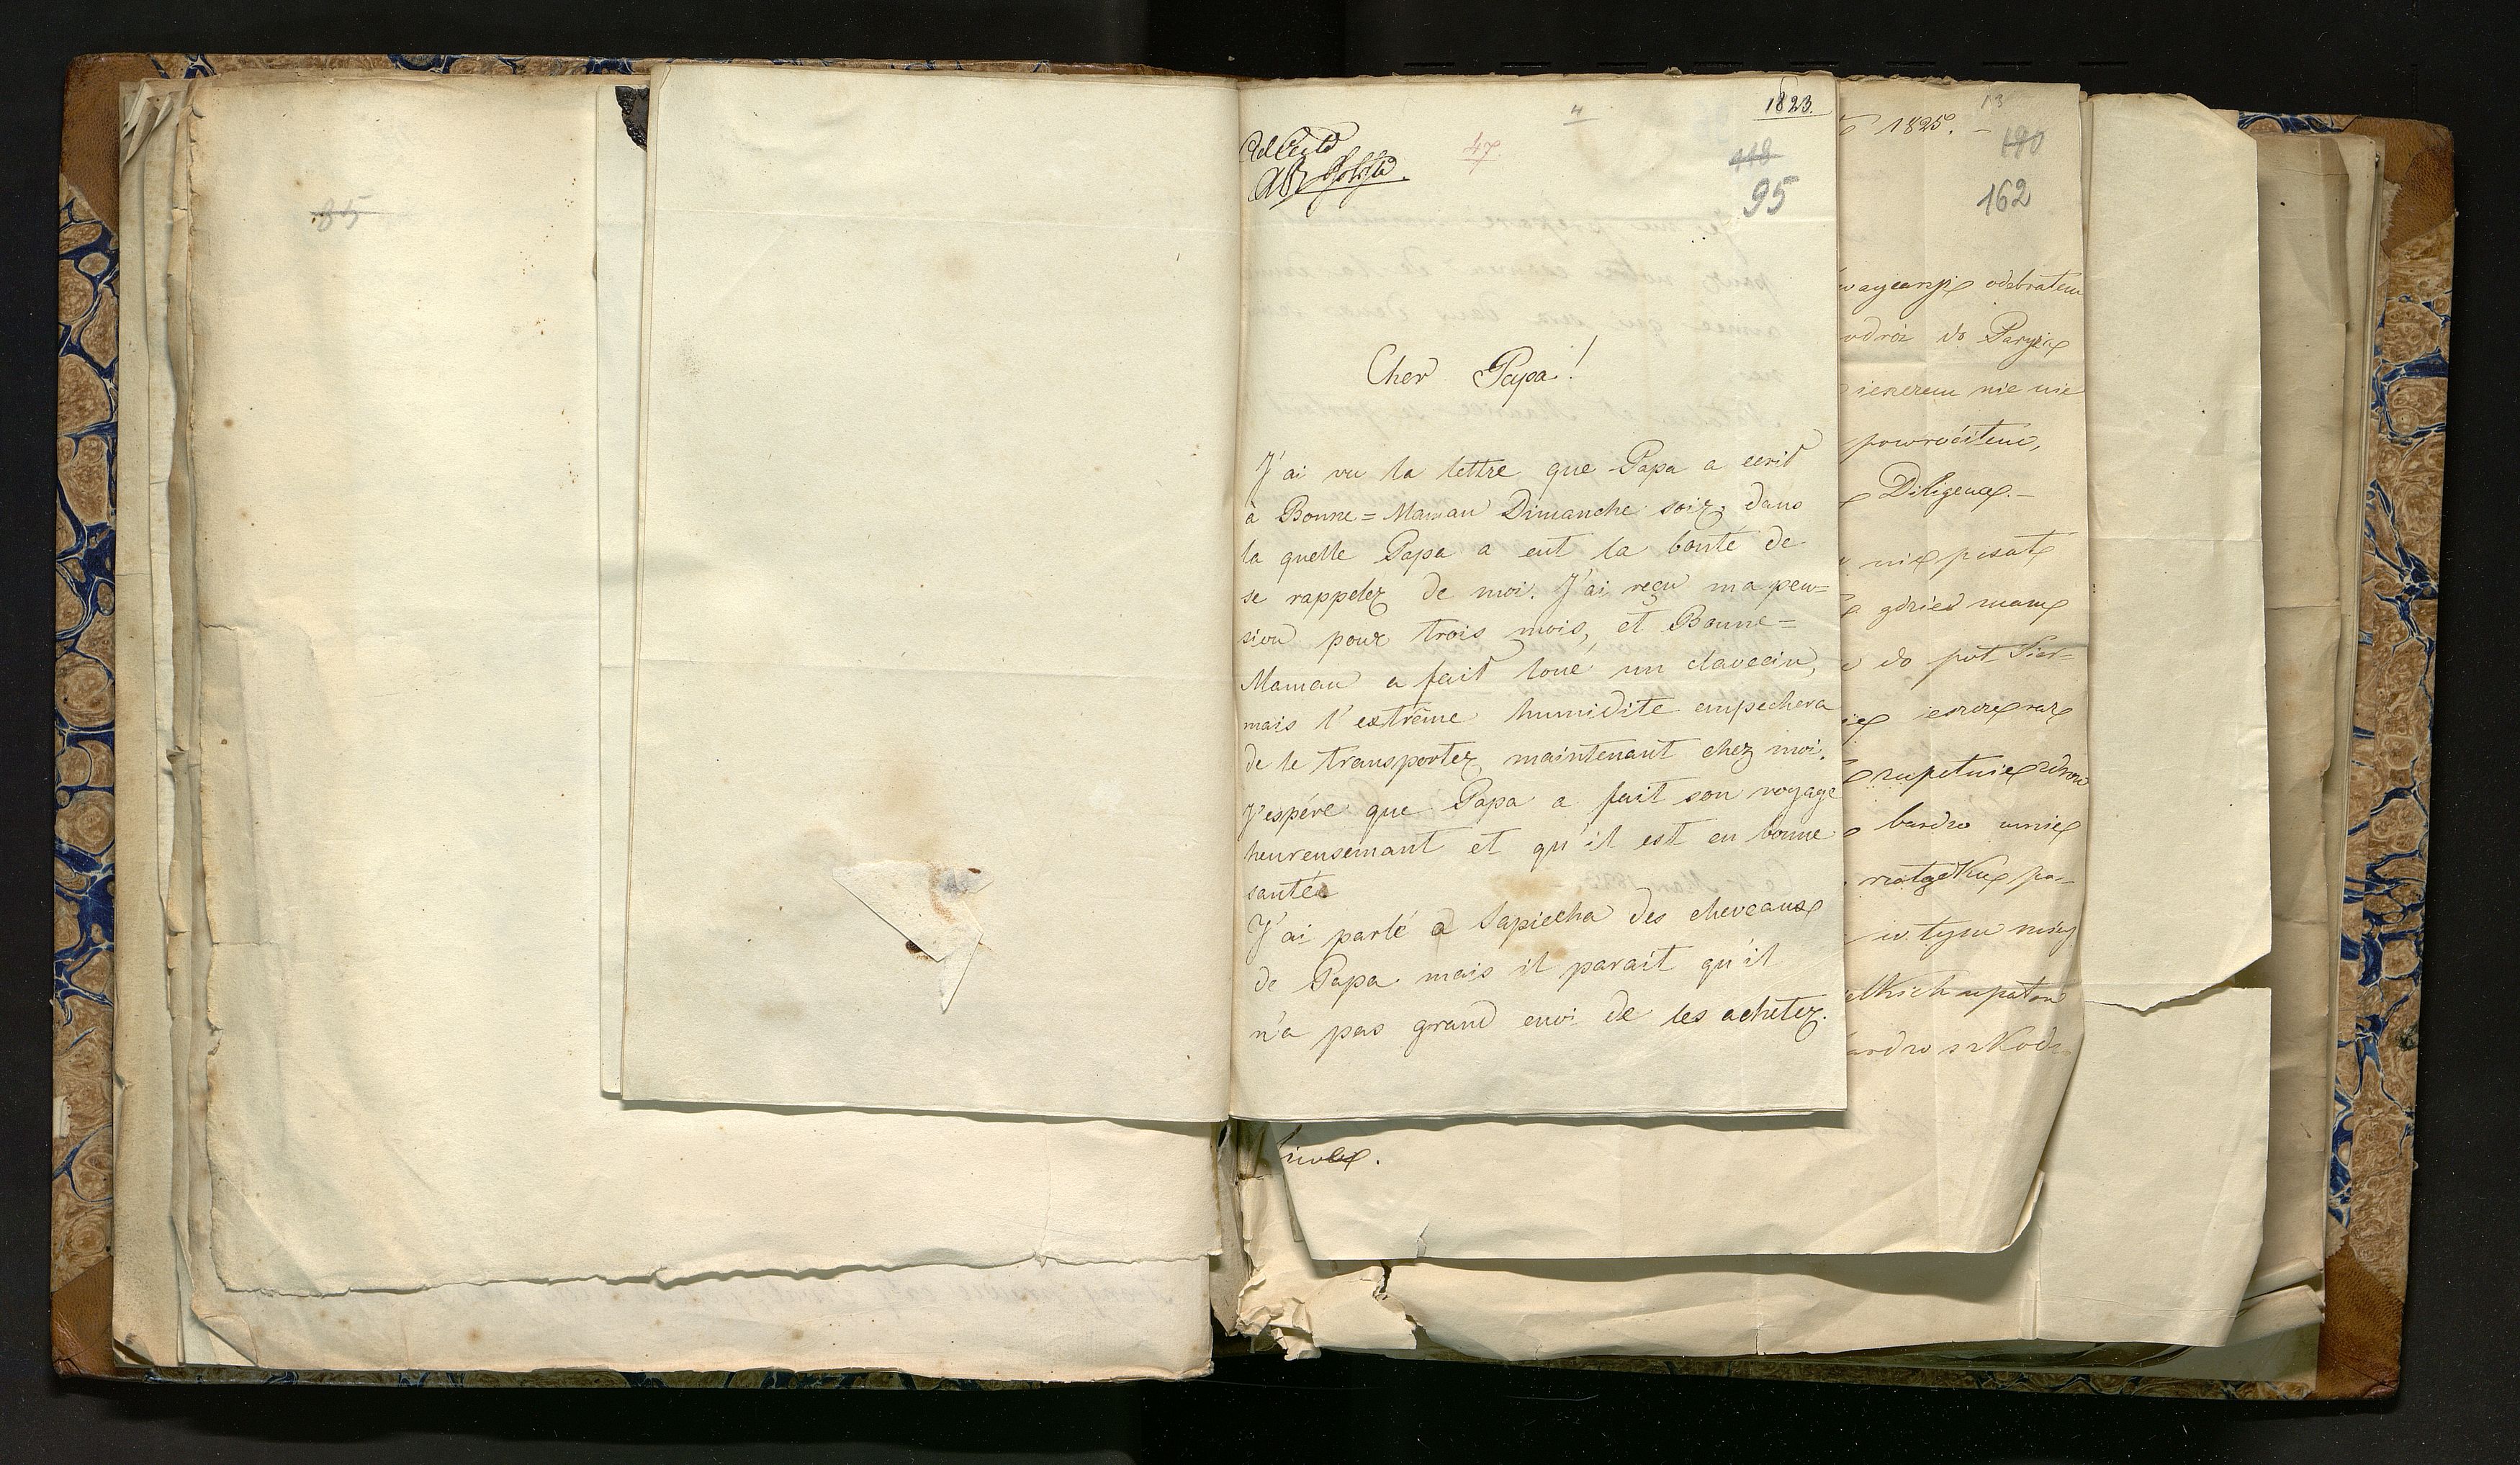 85
4
1823.
47.
118
95
Cher Papa!
J'ai vu la lettre que Papa a ecrit
à Bonne=Maman Dimanche soir, dans
la quelle Papa a eut la bonté de
se rappeler de moi. J'ai reçu ma pen=
sion pour trois mois, et Bonne=
Maman a fait loué un clavecin,
mais l'extrême humidite empechera
de le transporter maintenant chez moi.
J'espére que Papa a fait son voyage
heureusemant et qu'il est en bonne
santée
J'ai parlé a Sapiecha des cheveaux
de Papa mais il parait qu'il
n'a pas grand envi de les acheter.
13
1825. –
180
162
odebratem
do Paryża
nie nie
powróciłem,
Diligencę.–
nie pisał
gdzieś mam
do pół Sier=
jeszcze raz
zupełnie zdrow
bardzo mnie
po=
w tym